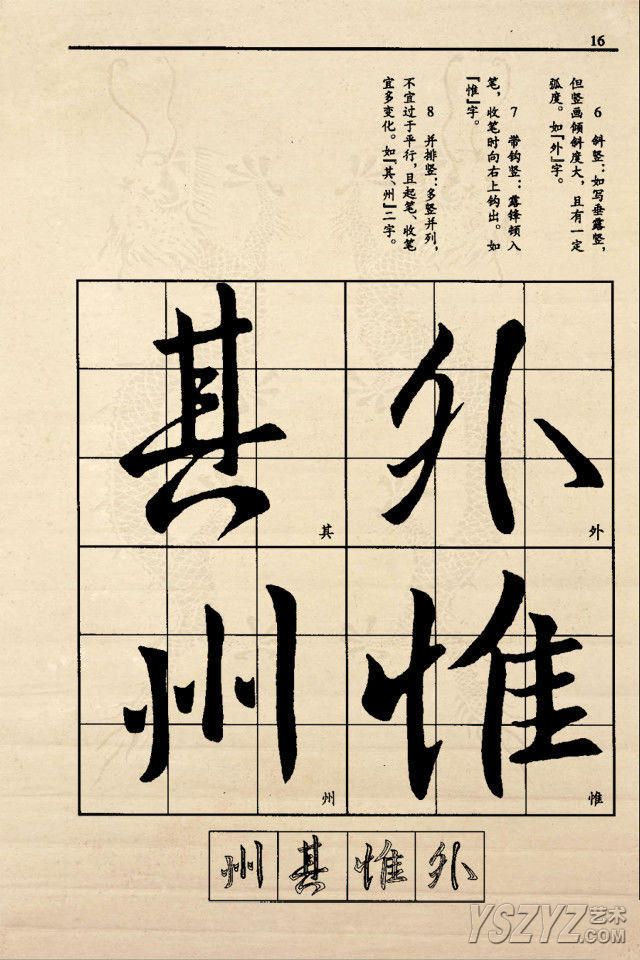 16
6 斜竖：如写垂露竖，
但竖画倾斜度大，且有一定
弧度。如『外』字。
7 带钩竖：露锋顿入
笔，收笔时向右上钩出。如
『惟』字。
8 并排竖：多竖并列，
不宜过于平行，且起笔、收笔
宜多变化。如『其、州』二字。
外
外
惟
惟
其
其
州
州
州其惟外
YSZYZ艺术
.COM